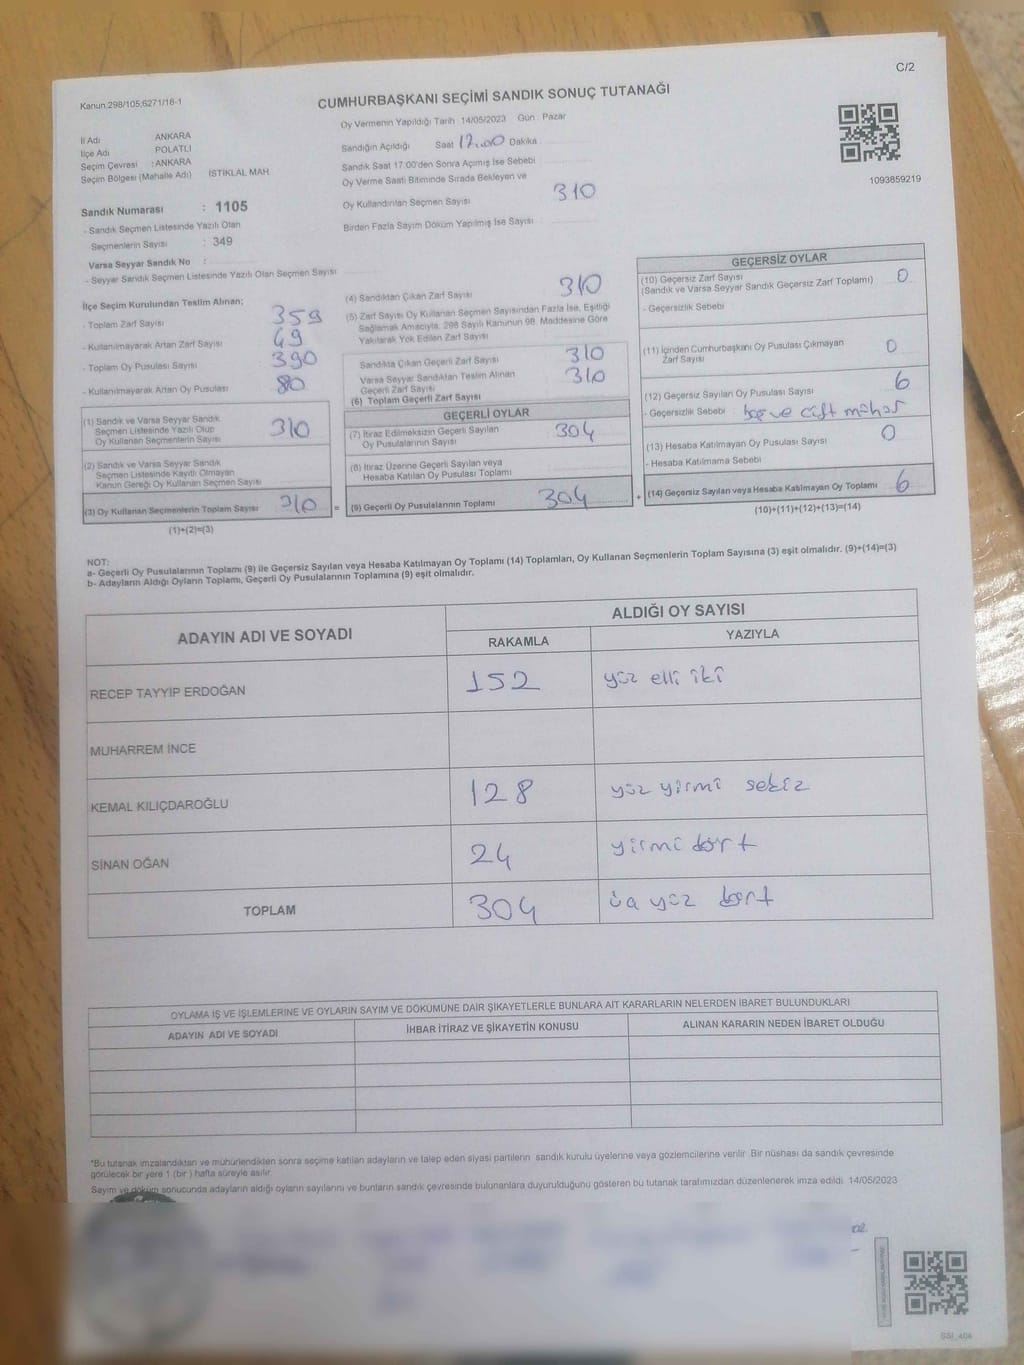 Kanun:298/105;6271/18-1
C/2
CUMHURBAŞKANI SEÇİMİ SANDIK SONUÇ TUTANAĞI
Oy Vermenin Yapıldığı Tarih : 14/05/2023 Gün : Pazar
İl Adı ANKARA
İlçe Adı POLATLI
Seçim Çevresi : ANKARA
Seçim Bölgesi (Mahalle Adı) İSTİKLAL MAH
Sandığın Açıldığı Saat 17:00 Dakika
Sandık Saat 17:00'den Sonra Açılmış İse Sebebi
Oy Verme Saati Bitiminde Sırada Bekleyen ve
Oy Kullandırılan Seçmen Sayısı 310
Birden Fazla Sayım Döküm Yapılmış İse Sayısı
1093859219
Sandık Numarası : 1105
- Sandık Seçmen Listesinde Yazılı Olan
Seçmenlerin Sayısı : 349
Varsa Seyyar Sandık No :
- Seyyar Sandık Seçmen Listesinde Yazılı Olan Seçmen Sayısı
İlçe Seçim Kurulundan Teslim Alınan;
- Toplam Zarf Sayısı 359
- Kullanılmayarak Artan Zarf Sayısı 49
- Toplam Oy Pusulası Sayısı 390
- Kullanılmayarak Artan Oy Pusulası 80
(1) Sandık ve Varsa Seyyar Sandık
Seçmen Listesinde Yazılı Olup
Oy Kullanan Seçmenlerin Sayısı 310
(2) Sandık ve Varsa Seyyar Sandık
Seçmen Listesinde Kayıtlı Olmayan
Kanun Gereği Oy Kullanan Seçmen Sayısı
(3) Oy Kullanan Seçmenlerin Toplam Sayısı 310 =
(1)+(2)=(3)
(4) Sandıktan Çıkan Zarf Sayısı 310
(5) Zarf Sayısı Oy Kullanan Seçmen Sayısından Fazla İse, Eşitliği
Sağlamak Amacıyla, 298 Sayılı Kanunun 98. Maddesine Göre
Yakılarak Yok Edilen Zarf Sayısı
Sandıkta Çıkan Geçerli Zarf Sayısı 310
Varsa Seyyar Sandıktan Teslim Alınan
Geçerli Zarf Sayısı 310
(6) Toplam Geçerli Zarf Sayısı
GEÇERLİ OYLAR
(7) İtiraz Edilmeksizin Geçerli Sayılan
Oy Pusulalarının Sayısı 304
(8) İtiraz Üzerine Geçerli Sayılan veya
Hesaba Katılan Oy Pusulası Toplamı
(9) Geçerli Oy Pusulalarının Toplamı 304 +
GEÇERSİZ OYLAR
(10) Geçersiz Zarf Sayısı
(Sandık ve Varsa Seyyar Sandık Geçersiz Zarf Toplamı) 0
- Geçersizlik Sebebi
(11) İçinden Cumhurbaşkanı Oy Pusulası Çıkmayan
Zarf Sayısı 0
(12) Geçersiz Sayılan Oy Pusulası Sayısı 6
- Geçersizlik Sebebi boş ve çift mühür
(13) Hesaba Katılmayan Oy Pusulası Sayısı 0
- Hesaba Katılmama Sebebi
(14) Geçersiz Sayılan veya Hesaba Katılmayan Oy Toplamı 6
(10)+(11)+(12)+(13)=(14)
NOT:
a- Geçerli Oy Pusulalarının Toplamı (9) ile Geçersiz Sayılan veya Hesaba Katılmayan Oy Toplamı (14) Toplamları, Oy Kullanan Seçmenlerin Toplam Sayısına (3) eşit olmalıdır. (9)+(14)=(3)
b- Adayların Aldığı Oyların Toplamı, Geçerli Oy Pusulalarının Toplamına (9) eşit olmalıdır.
ADAYIN ADI VE SOYADI ALDIĞI OY SAYISI
RAKAMLA YAZIYLA
RECEP TAYYİP ERDOĞAN 152 yüz elli iki
MUHARREM İNCE
KEMAL KILIÇDAROĞLU 128 yüz yirmi sekiz
SİNAN OĞAN 24 yirmi dört
TOPLAM 304 üç yüz dört
OYLAMA İŞ VE İŞLEMLERİNE VE OYLARIN SAYIM VE DÖKÜMÜNE DAİR ŞİKAYETLERLE BUNLARA AİT KARARLARIN NELERDEN İBARET BULUNDUKLARI
ADAYIN ADI VE SOYADI İHBAR İTİRAZ VE ŞİKAYETİN KONUSU ALINAN KARARIN NEDEN İBARET OLDUĞU
*Bu tutanak imzalandıktan ve mühürlendikten sonra seçime katılan adayların ve talep eden siyasi partilerin sandık kurulu üyelerine veya gözlemcilerine verilir. Bir nüshası da sandık çevresinde
görülecek bir yere 1 (bir ) hafta süreyle asılır.
Sayım ve döküm sonucunda adayların aldığı oyların sayılarını ve bunların sandık çevresinde bulunanlara duyurulduğunu gösteren bu tutanak tarafımızdan düzenlenerek imza edildi. 14/05/2023